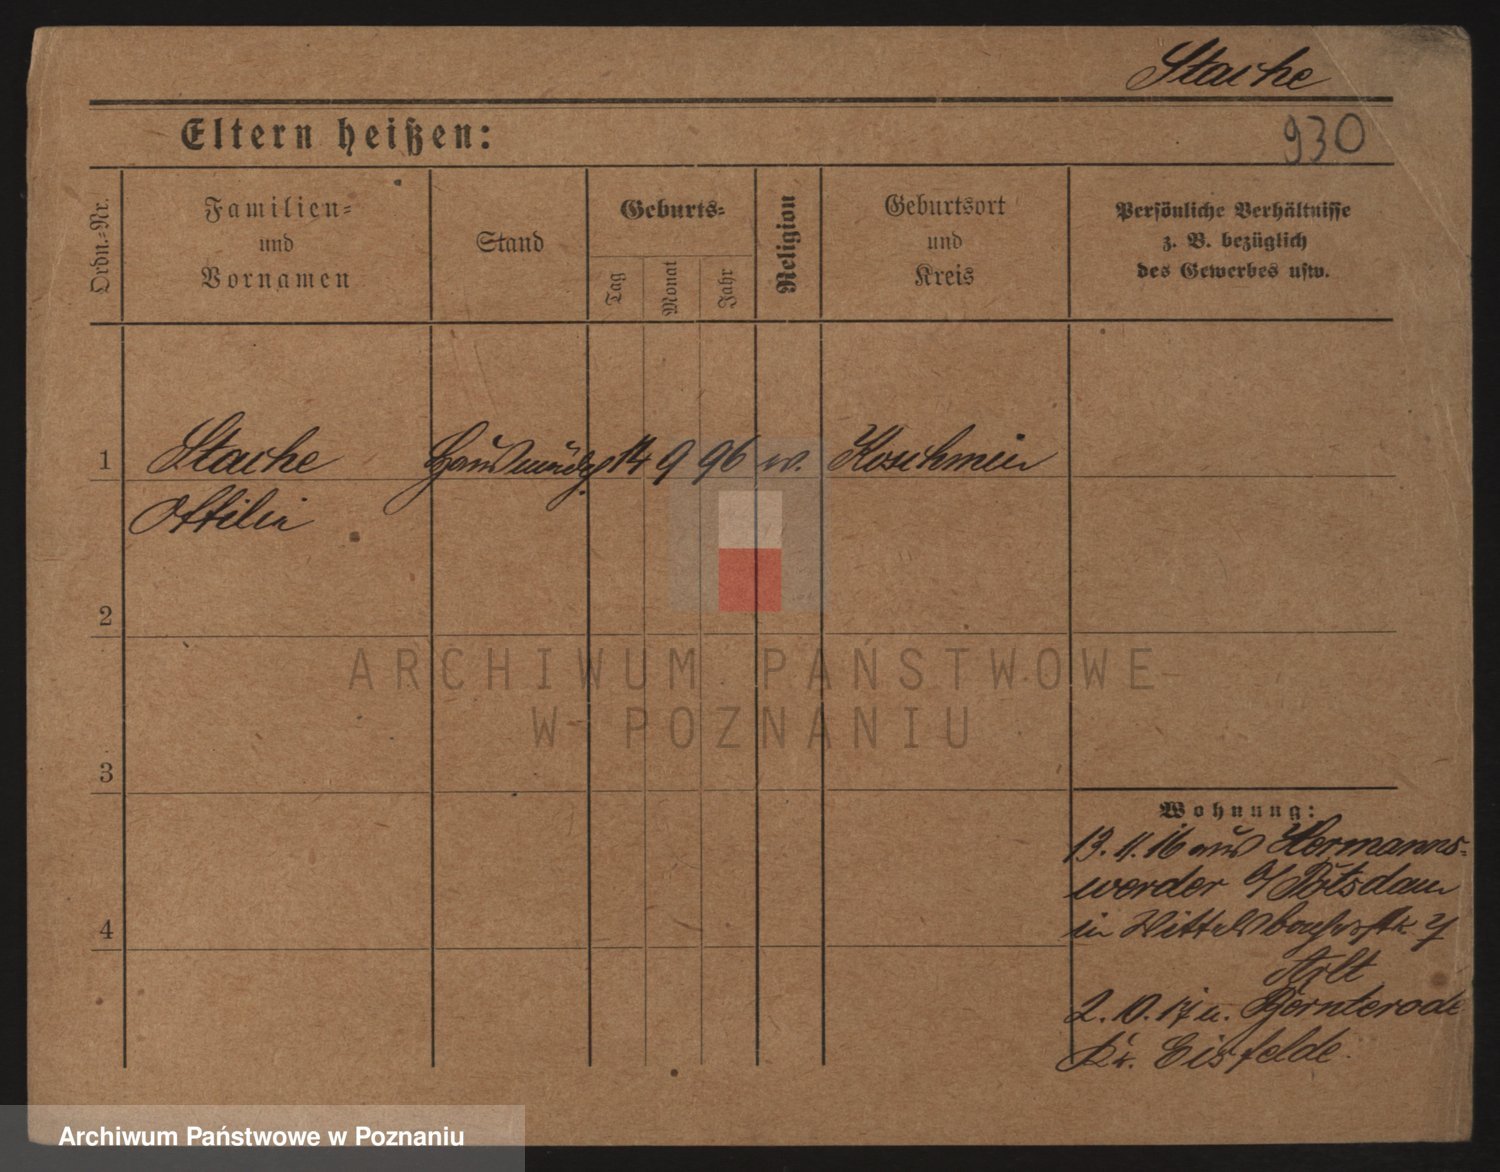 Stache
Eltern heißen:
930
Ordn.=Nr.
Familien=
und
Vornamen
Stand
Geburts=
Tag
Monat
Jahr
Religion
Geburtsort
und
Kreis
Persönliche Verhältnisse
z. B. bezüglich
des Gewerbes usw.
1 Stache Hausmädch 14 9 96 Koschmin
Ottilie
2
3
4
Wohnung:
13.11.16 aus Hermanns=
werder Potsdam
in
Arlt
2.10.17 n. Bernterode
Kr. Eisfelde.
ARCHIWUM PAŃSTWOWE
W POZNANIU
Archiwum Państwowe w Poznaniu